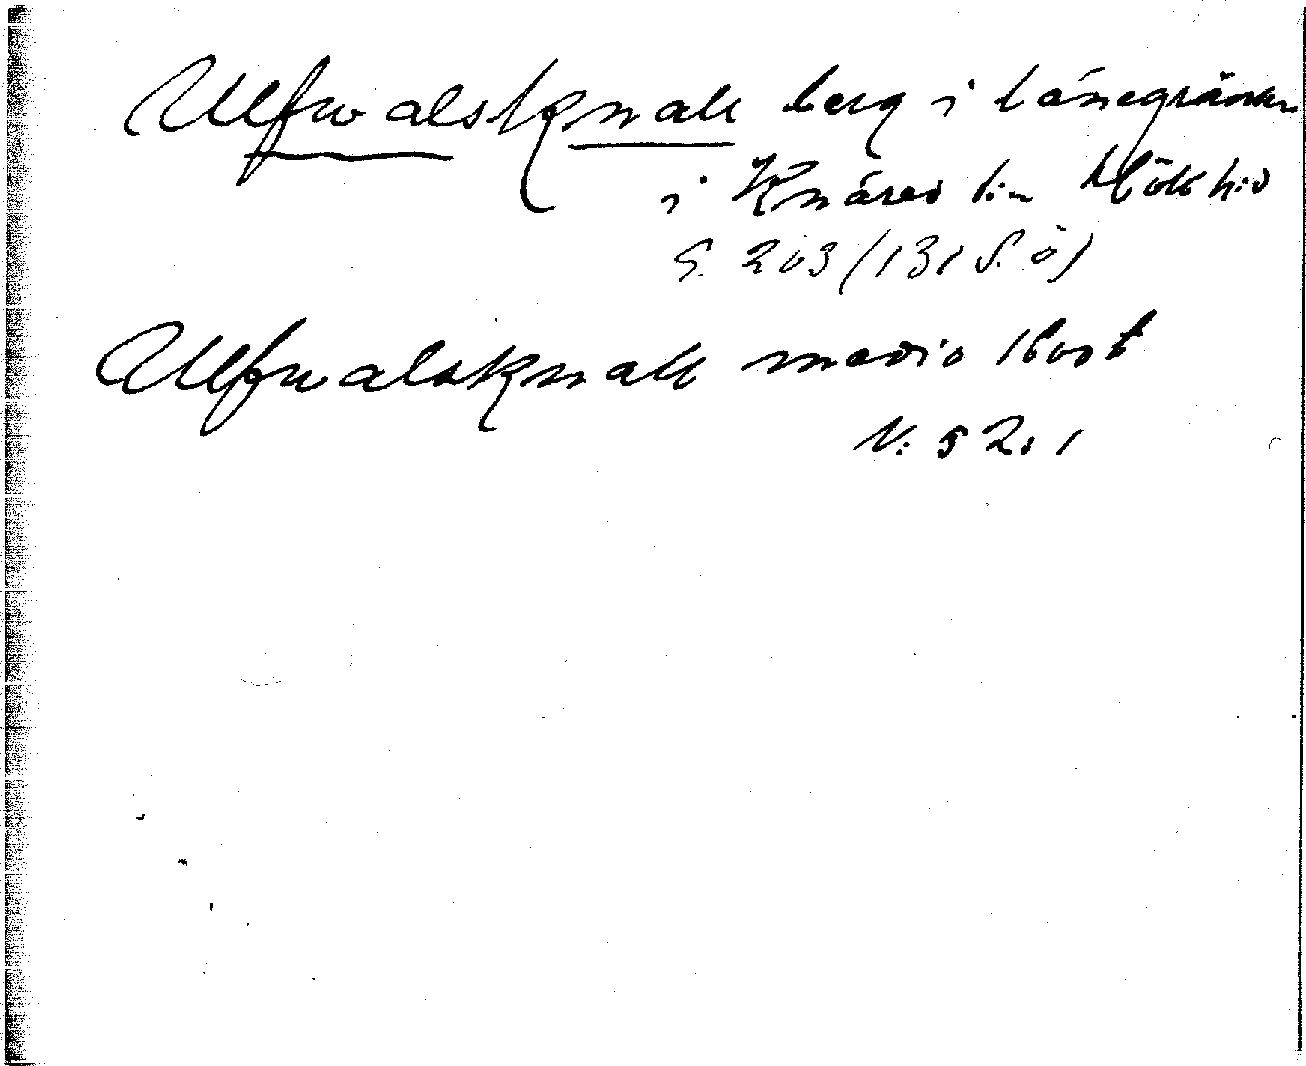 Ulfwalsknall berg i länsgränsen
i Knäred s:n Hökh:d
S. 203 (131 S. Ö)
Ulfwalsknall medio
N: 52. 1